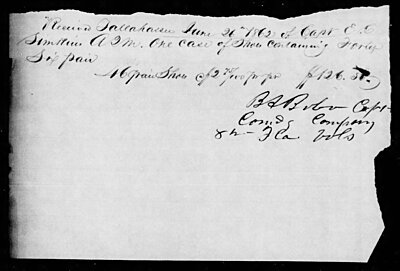 Received Tallahassee June 26th 1862 of Capt E. D.
A Q M. One case of Shoes Containing Forty
Six pair
46 pair Shoes @ 2 75/100 pr pr $126.50
B F Capt
Comdg Company
8th Fla Vols